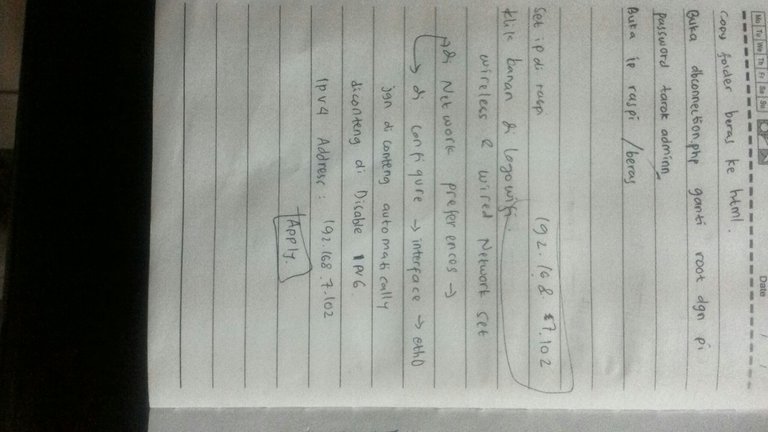 Mo Tu We Th Fr Sa Su
Date / /
copy folder beras ke html.
Buka dbconnection.php ganti root dgn pi
password tarok adminn
Buka ip raspi /beras
Set ip di raspi 192.168.7.102
klik kanan di logo wifi.
wireless & wired Network set
di Network preferences →
→ di configure → interface → eth0
jgn di conteng automatically
diconteng di Disable IPV6.
IPv4 Address : 192.168.7.102
Apply.